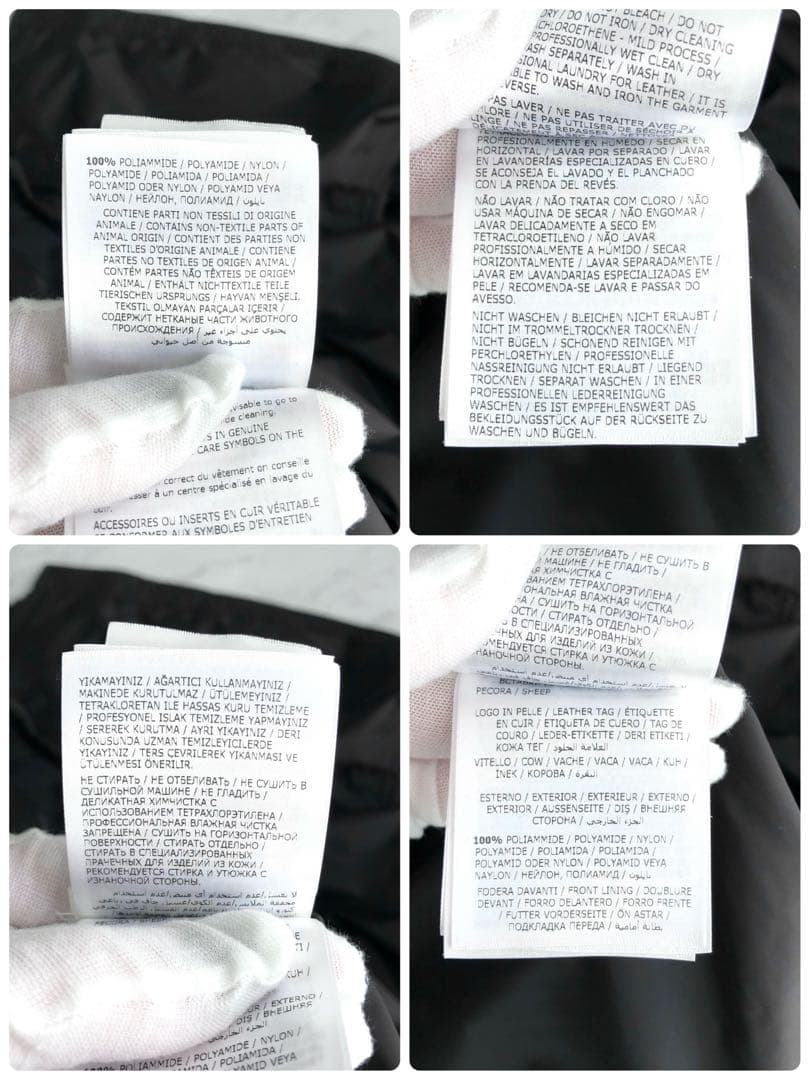 100% POLIAMMIDE / POLYAMIDE / NYLON /
POLYAMIDE / POLIAMIDA / POLIAMIDA /
POLYAMID ODER NYLON / POLYAMID VEYA
NAYLON / НЕЙЛОН, ПОЛИАМИД / نايلون
CONTIENE PARTI NON TESSILI DI ORIGINE
ANIMALE / CONTAINS NON-TEXTILE PARTS OF
ANIMAL ORIGIN / CONTIENT DES PARTIES NON
TEXTILES D'ORIGINE ANIMALE / CONTIENE
PARTES NO TEXTILES DE ORIGEN ANIMAL /
CONTÉM PARTES NÃO TÊXTEIS DE ORIGEM
ANIMAL / ENTHÄLT NICHTTEXTILE TEILE
TIERISCHEN URSPRUNGS / HAYVAN MENŞELİ,
TEKSTIL OLMAYAN PARÇALAR İÇERİR /
СОДЕРЖИТ НЕТКАНЫЕ ЧАСТИ ЖИВОТНОГО
ПРОИСХОЖДЕНИЯ / يحتوي على أجزاء غير
منسوجة من أصل حيواني
visable to go to
de cleaning.
S IN GENUINE
CARE SYMBOLS ON THE
correct du vêtement on conseille
esser à un centre spécialisé en lavage du
cuir.
ACCESSOIRES OU INSERTS EN CUIR VÉRITABLE
SE CONFORMER AUX SYMBOLES D'ENTRETIEN
BLEACH / DO NOT
RY / DO NOT IRON / DRY CLEANING
CHLOROETHENE - MILD PROCESS /
PROFESSIONALLY WET CLEAN / DRY
ASH SEPARATELY / WASH IN
SIONAL LAUNDRY FOR LEATHER / IT IS
BLE TO WASH AND IRON THE GARMENT
VERSE.
PAS LAVER / NE PAS TRAITER AVEC
LORE / NE PAS UTILISER DE SÉCHOI
LINGE / NE PAS REPASSER
PROFESIONALMENTE EN HÚMEDO / SECAR EN
HORIZONTAL / LAVAR POR SEPARADO / LAVAR
EN LAVANDERÍAS ESPECIALIZADAS EN CUERO /
SE ACONSEJA EL LAVADO Y EL PLANCHADO
CON LA PRENDA DEL REVÉS.
NÃO LAVAR / NÃO TRATAR COM CLORO / NÃO
USAR MÁQUINA DE SECAR / NÃO ENGOMAR /
LAVAR DELICADAMENTE A SECO EM
TETRACLOROETILENO / NÃO LAVAR
PROFISSIONALMENTE A HÚMIDO / SECAR
HORIZONTALMENTE / LAVAR SEPARADAMENTE /
LAVAR EM LAVANDARIAS ESPECIALIZADAS EM
PELE / RECOMENDA-SE LAVAR E PASSAR DO
AVESSO.
NICHT WASCHEN / BLEICHEN NICHT ERLAUBT /
NICHT IM TROMMELTROCKNER TROCKNEN /
NICHT BÜGELN / SCHONEND REINIGEN MIT
PERCHLORETHYLEN / PROFESSIONELLE
NASSREINIGUNG NICHT ERLAUBT / LIEGEND
TROCKNEN / SEPARAT WASCHEN / IN EINER
PROFESSIONELLEN LEDERREINIGUNG
WASCHEN / ES IST EMPFEHLENSWERT DAS
BEKLEIDUNGSSTÜCK AUF DER RÜCKSEITE ZU
WASCHEN UND BÜGELN.
YIKAMAYINIZ / AĞARTICI KULLANMAYINIZ /
MAKINEDE KURUTULMAZ / ÜTÜLEMEYINIZ /
TETRAKLORETAN ILE HASSAS KURU TEMIZLEME
/ PROFESYONEL ISLAK TEMIZLEME YAPMAYINIZ
/ SEREREK KURUTMA / AYRI YIKAYINIZ / DERI
KONUSUNDA UZMAN TEMIZLEYICILERDE
YIKAYINIZ / TERS ÇEVRILEREK YIKANMASI VE
ÜTÜLENMESI ÖNERILIR.
НЕ СТИРАТЬ / НЕ ОТБЕЛИВАТЬ / НЕ СУШИТЬ В
СУШИЛЬНОЙ МАШИНЕ / НЕ ГЛАДИТЬ /
ДЕЛИКАТНАЯ ХИМЧИСТКА С
ИСПОЛЬЗОВАНИЕМ ТЕТРАХЛОРЭТИЛЕНА /
ПРОФЕССИОНАЛЬНАЯ ВЛАЖНАЯ ЧИСТКА
ЗАПРЕЩЕНА / СУШИТЬ НА ГОРИЗОНТАЛЬНОЙ
ПОВЕРХНОСТИ / СТИРАТЬ ОТДЕЛЬНО /
СТИРАТЬ В СПЕЦИАЛИЗИРОВАННЫХ
ПРАЧЕЧНЫХ ДЛЯ ИЗДЕЛИЙ ИЗ КОЖИ /
РЕКОМЕНДУЕТСЯ СТИРКА И УТЮЖКА С
ИЗНАНОЧНОЙ СТОРОНЫ.
KUH /
EXTERNO /
DIŞ / ВНЕШНЯЯ
الجزء الخارجي
100% POLIAMMIDE / POLYAMIDE / NYLON /
POLYAMIDE / POLIAMIDA /
POLYAMID VEYA
/ НЕ ОТБЕЛИВАТЬ / НЕ СУШИТЬ В
МАШИНЕ / НЕ ГЛАДИТЬ /
Я ХИМЧИСТКА С
ВАНИЕМ ТЕТРАХЛОРЭТИЛЕНА /
ОНАЛЬНАЯ ВЛАЖНАЯ ЧИСТКА
НА / СУШИТЬ НА ГОРИЗОНТАЛЬНОЙ
ОСТИ / СТИРАТЬ ОТДЕЛЬНО /
В СПЕЦИАЛИЗИРОВАННЫХ
ЕЧНЫХ ДЛЯ ИЗДЕЛИЙ ИЗ КОЖИ /
ОМЕНДУЕТСЯ СТИРКА И УТЮЖКА С
НАНОЧНОЙ СТОРОНЫ.
PECORA / SHEEP
LOGO IN PELLE / LEATHER TAG / ÉTIQUETTE
EN CUIR / ETIQUETA DE CUERO / TAG DE
COURO / LEDER-ETIKETTE / DERI ETIKETI /
КОЖА ТЕГ / العلامة الجلود
VITELLO / COW / VACHE / VACA / VACA / KUH /
INEK / КОРОВА / البقرة
ESTERNO / EXTERIOR / EXTERIEUR / EXTERNO /
EXTERIOR / AUSSENSEITE / DIŞ / ВНЕШНЯЯ
СТОРОНА / الجزء الخارجي
100% POLIAMMIDE / POLYAMIDE / NYLON /
POLYAMIDE / POLIAMIDA / POLIAMIDA /
POLYAMID ODER NYLON / POLYAMID VEYA
NAYLON / НЕЙЛОН, ПОЛИАМИД / نايلون
FODERA DAVANTI / FRONT LINING / DOUBLURE
DEVANT / FORRO DELANTERO / FORRO FRENTE
/ FUTTER VORDERSEITE / ÖN ASTAR /
ПОДКЛАДКА ПЕРЕДА / بطانة أمامية